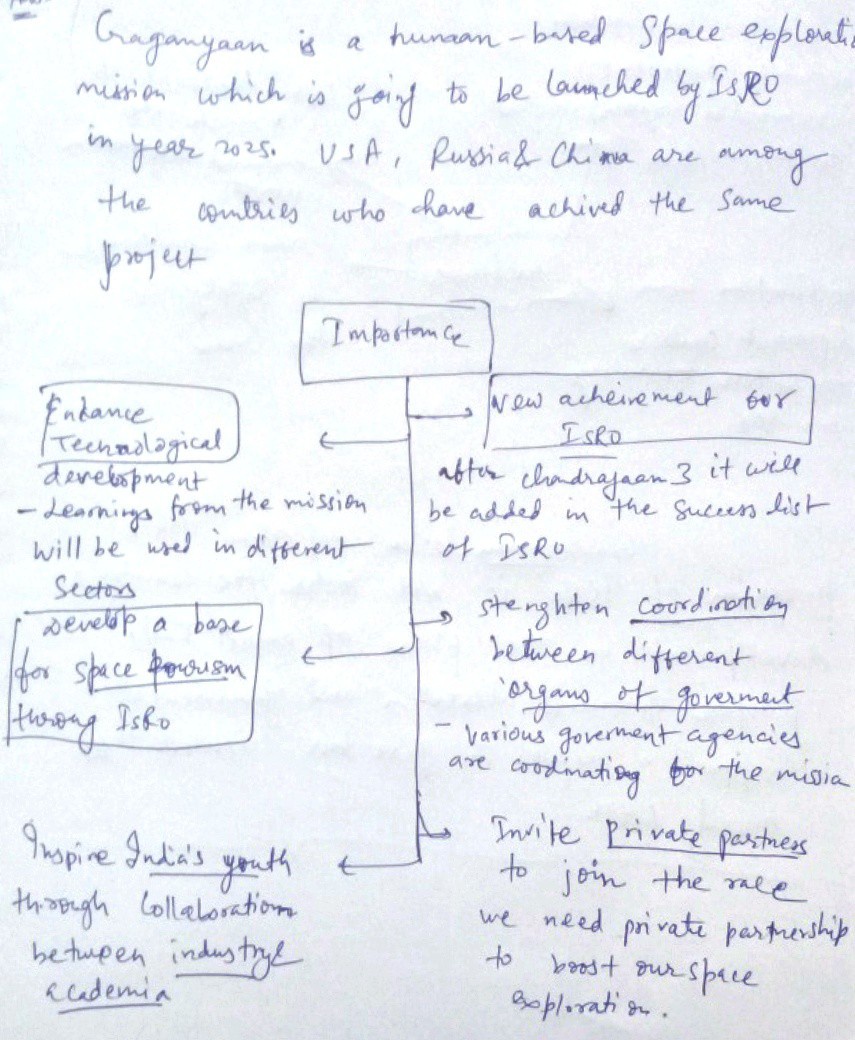 Gaganyaan is a humaan-based Space explorati
mission which is going to be launched by ISRO
in year 2025. USA, Russia & China are among
the countries who have achived the same
project
Importance
New acheivement for
ISRO
after chandrajaan 3 it will
be added in the success list
of ISRO
Enhance
Technological
development
- Learnings from the mission
will be used in different
Sectors
stenghten coordination
between different
organs of goverment
- various goverment agencies
are coordinating for the missia
Develop a base
for space tourism
throug ISRO
Invite private partners
to join the race
we need private partnership
to boost our space
exploration.
Inspire India's youth
through Collaboration
between industry &
academia